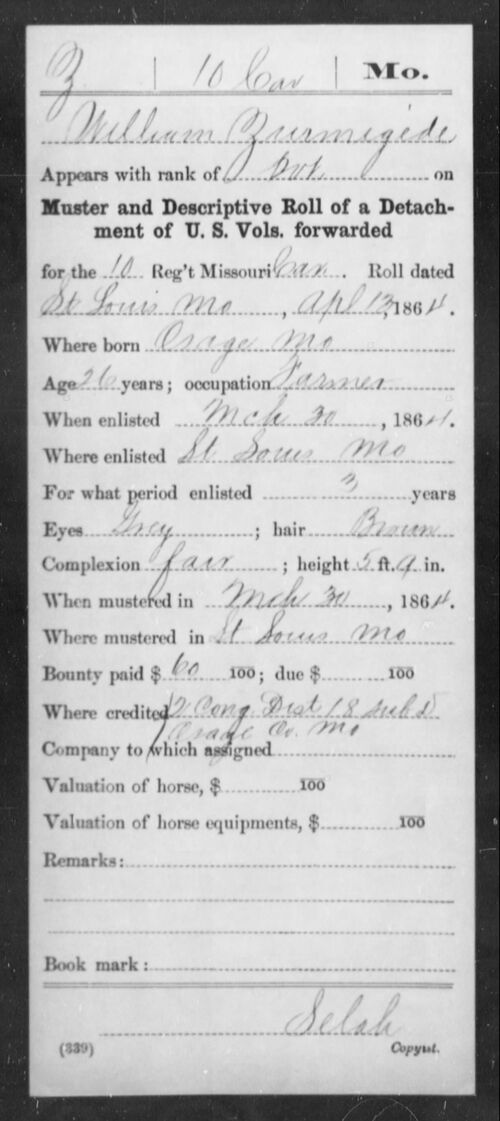 Z | 10 Cav | Mo.
William Zurmegede
Appears with rank of Pvt on
Muster and Descriptive Roll of a Detach-
ment of U. S. Vols. forwarded
for the 10 Reg't Missouri Cav. Roll dated
St Louis Mo, Apl 13, 1864.
Where born Osage Mo
Age 26 years; occupation Farmer
When enlisted Mch 30, 1864.
Where enlisted St Louis Mo
For what period enlisted 3 years
Eyes Grey; hair Brown
Complexion fair; height 5 ft. 9 in.
When mustered in Mch 30, 1864.
Where mustered in St Louis Mo
Bounty paid $ 60 100; due $ 100
Where credited 2 Cong Dist 18 sub d
Osage Co. Mo
Company to which assigned
Valuation of horse, $ 100
Valuation of horse equipments, $ 100
Remarks:
Book mark:
Selah
(339) Copyist.